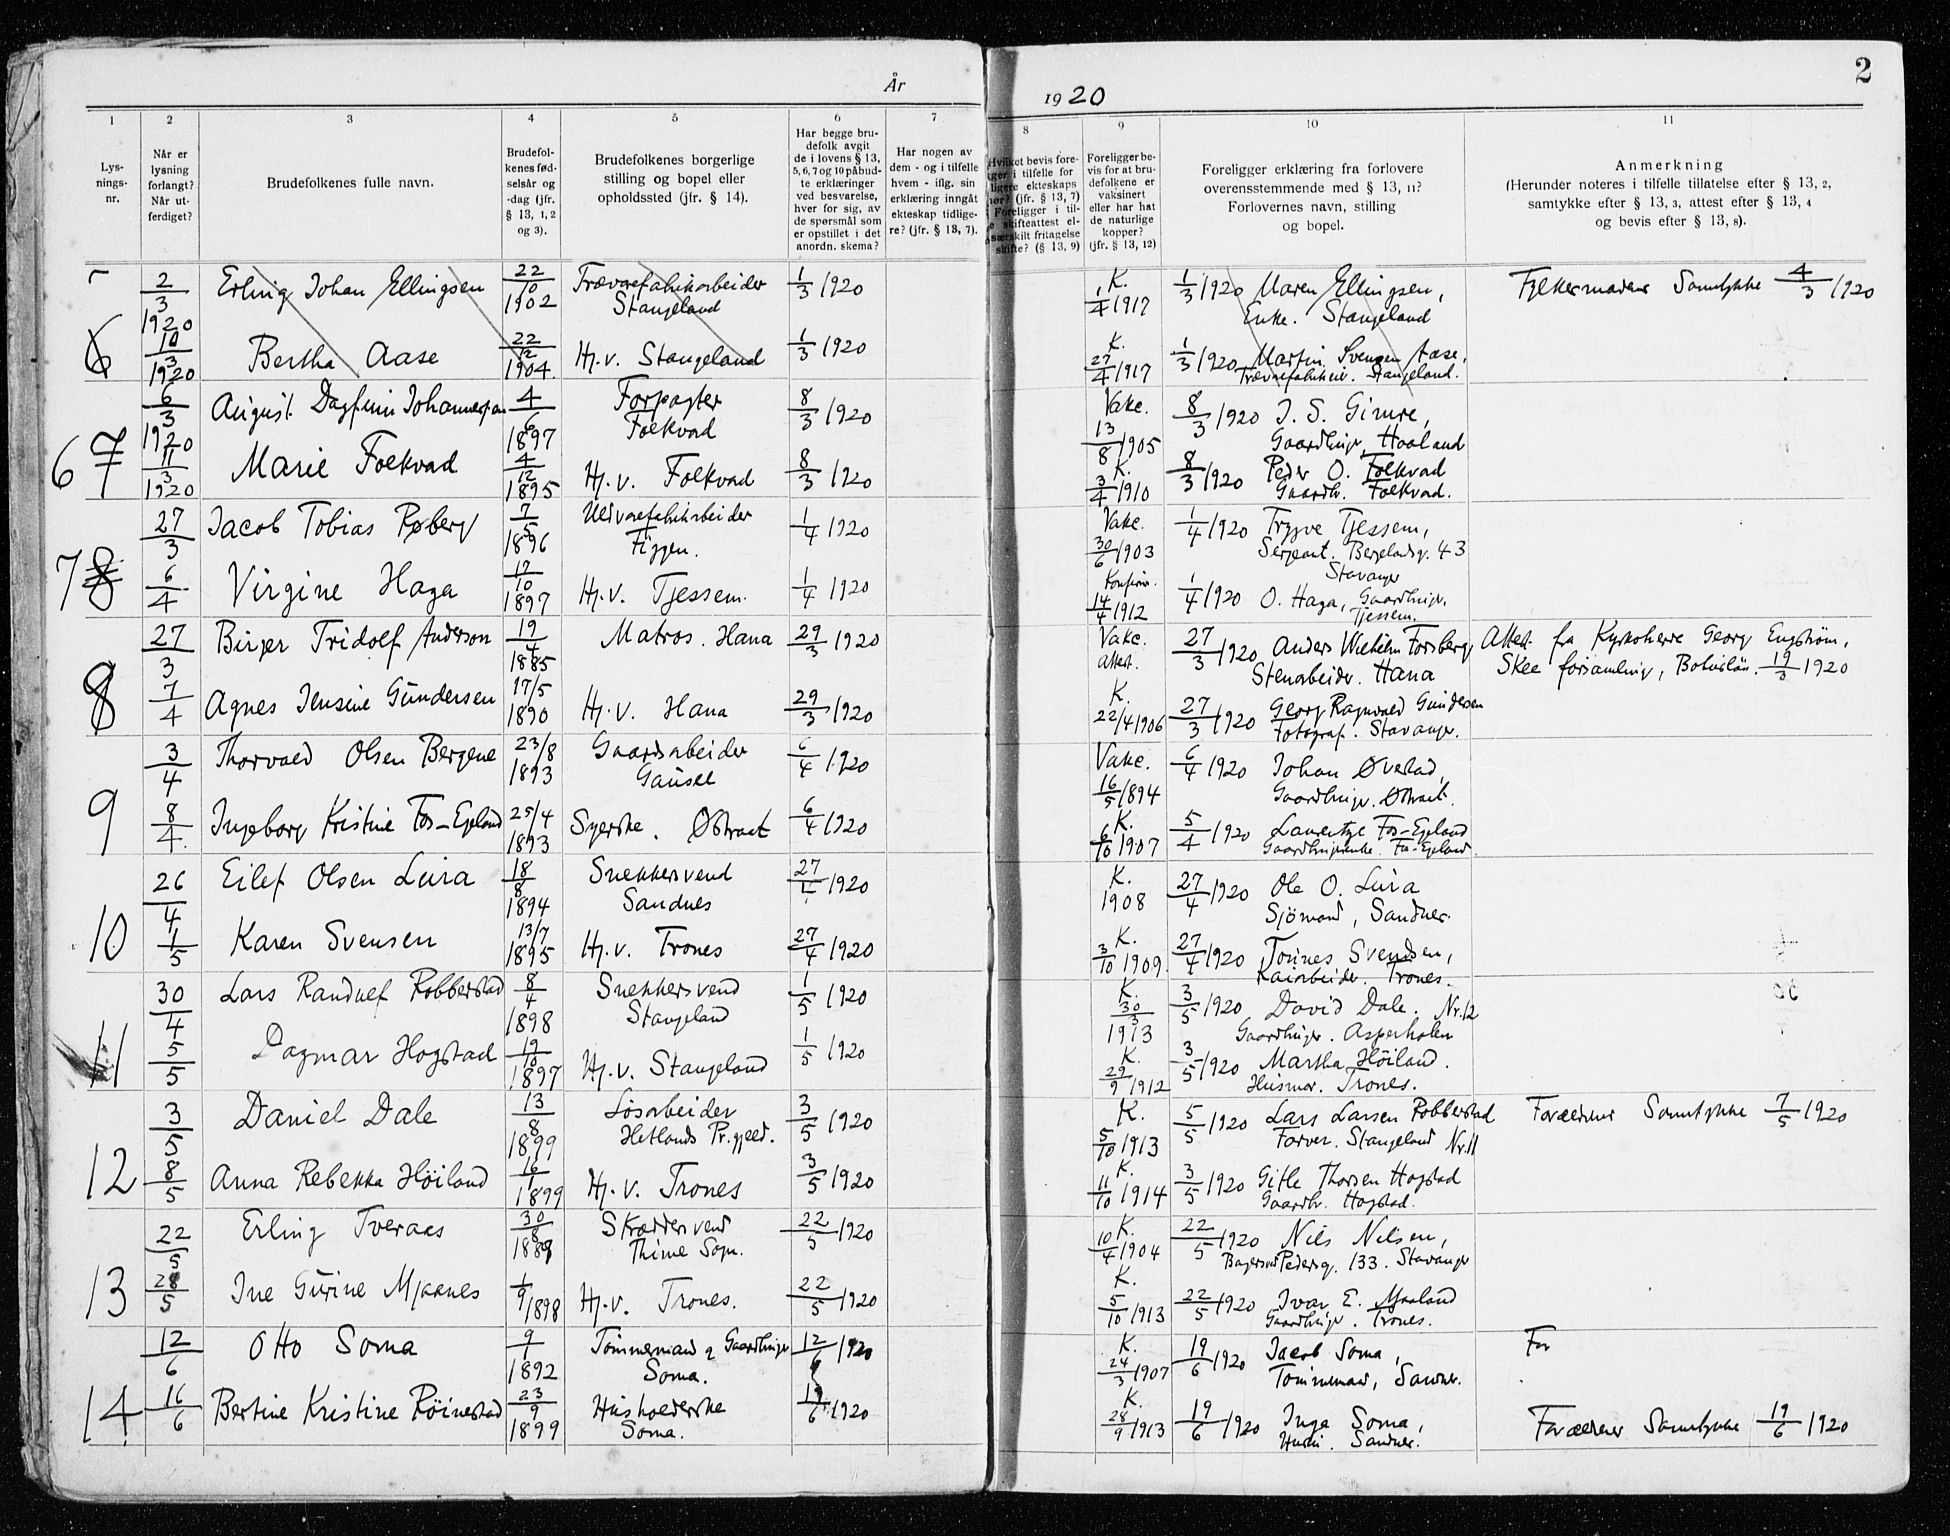 År 1920
2
1 2 3 4 5 6 7 8 9 10 11
Lys-
nings-
nr.
Når er
lysning
forlangt?
Når ut-
ferdiget?
Brudefolkenes fulle navn.
Brudefol-
kenes fød-
selsår og
-dag (jfr.
§ 13, 1, 2
og 3).
Brudefolkenes borgerlige
stilling og bopel eller
opholdssted (jfr. § 14).
Har begge bru-
defolk avgit
de i lovens § 13,
5, 6, 7 og 10 påbud-
te erklæringer
ved besvarelse,
hver for sig, av
de spørsmål som
er opstillet i det
anordn. skema?
Har nogen av
dem - og i tilfelle
hvem - iflg. sin
erklæring inngått
ekteskap tidlige-
re? (jfr. § 13, 7).
bevis fore-
i tilfelle for
ekteskaps
(jfr. § 13, 7)
Foreligger i til-
skifteattest el-
særskilt fritagelse
skifte? (§ 13, 9)
Foreligger be-
vis for at bru-
defolkene er
vaksinert
eller har hat
de naturlige
kopper?
(jfr. § 13, 12)
Foreligger erklæring fra forlovere
overensstemmende med § 13, 11?
Forlovernes navn, stilling
og bopel.
Anmerkning
(Herunder noteres i tilfelle tillatelse efter § 13, 2,
samtykke efter § 13, 3, attest efter § 13, 4
og bevis efter § 13, 8).
2/3 1920 Erling Johan Ellingsen 22/10 1902 Trævarefabrikarbeider Stangeland 1/3 1920 K. 1/4 1917 1/3 1920 Maren Ellingsen, Enke. Stangeland Samtykke 4/3 1920
6 10/3 1920 Bertha Aase 22/12 1904. Hj.v. Stangeland 1/3 1920 K. 27/4 1917 1/3 1920 Martin Svensen Aase. Stangeland.
6/3 1920 August Dagfinn Johannessen 4/6 1897 Forpagter Folkvad 8/3 1920 Vakc. 13/8 1905 8/3 1920 J. S. Gimre, Gaardbruger, Hoaland
6 7 11/3 1920 Marie Folkvad 4/12 1895 Hj.v. Folkvad 8/3 1920 K. 3/4 1910 8/3 1920 Peder O. Folkvad Gaardb. Folkvad.
27/3 Jacob Tobias Røberg 7/5 1896 Uldvarefabrikarbeider Figgen. 1/4 1920 Vakc. 30/6 1903 1/4 1920 Trygve Tjessem, Sergeant. Bergelandsg. 43 Stavanger
7 8 6/4 Virgine Haga 17/10 1897 Hj.v. Tjessem. 1/4 1920 Konfirm. 14/4 1912 1/4 1920 O. Haga, Gaardbruger, Tjessem.
27/3 Birger Fridolf Anderson 19/4 1885 Matros. Hana 29/3 1920 Vakc. attest. 27/3 1920 Anders Wilhelm Forsberg Stenarbeider. Hana Attest fra Kyrkoherre Georg Engstrøm, Skee forsamling, 19/3 1920
8 7/4 Agnes Jensine Gundersen 17/5 1890 Hj.v. Hana 29/3 1920 K. 22/4 1906 27/3 1920 Georg Ragnvald Gundersen Fotograf. Stavanger.
3/4 Thorvald Olsen Bergene 23/8 1893 Gaardsarbeider Gausel 6/4 1920 Vakc. 16/5 1894 6/4 1920 Johan Øvestad, Gaardbruger.
9 8/4 Ingeborg Kristine Fos-Egeland 25/4 1893 Syerske. 6/4 1920 K. 6/10 1907 5/4 1920 Fos-Egeland Fos-Egeland
26/4 Eilef Olsen Lura 18/8 1894 Snekkersvend Sandnes 27/4 1920 K. 1908 27/4 1920 Ole O. Lura Sjömand, Sandnes.
10 1/5 Karen Svensen 13/7 1895 Hj.v. Trones 27/4 1920 K. 3/10 1909. 27/4 1920 Tönnes Svendsen, Kaiarbeider. Trones.
30/4 Lars Randulf Robberstad 8/4 1898 Snekkersvend Stangeland 1/5 1920 K. 30/3 1913 3/5 1920 David Dale. Nr. 12 Gaardbruger. Asperholen
11 5/5 Dagmar Hogstad 1897 Hj.v. Stangeland 1/5 1920 K. 29/9 1912 3/5 1920 Martha Höiland. Husmor. Trones.
3/5 Daniel Dale 13/8 1899 Løsarbeider Hetlands Pr.gjeld. 3/5 1920 K. 5/10 1913 5/5 1920 Lars Larsen Robberstad Farver. Stangeland Nr. 11 Forældrenes Samtykke 7/5 1920
12 8/5 Anna Rebekka Höiland 16/1 1899 Hj.v. Trones 3/5 1920 K. 11/10 1914 3/5 1920 Gitle Thorsen Hogstad Gaardbr. Hogstad.
22/5 Erling Tveraas 30/8 1889 Skræddersvend Thime Sogn. 22/5 1920 K. 10/4 1904 22/5 1920 Nils Nilsen, Bagersvend Pedersg. 133. Stavanger
13 28/5 Ine Gurine Mjaanes 1/9 1898 Hj.v. Trones. 22/5 1920 K. 5/10 1913 22/5 1920 Ivar E. Maaland Gaardbruger. Trones.
12/6 Otto Soma 9/1 1892 Tömmermand og Gaardbruger Soma. 12/6 1920 K. 24/3 1907 19/6 1920 Jacob Soma, Tömmermand, Sandnes. For
14 16/6 Bertine Kristine Röinestad 23/9 1899 Husholderske Soma. 19/6 1920 K. 28/9 1913 19/6 1920 Inga Soma, Hustru. Sandnes. Forældrenes Samtykke 19/6 1920